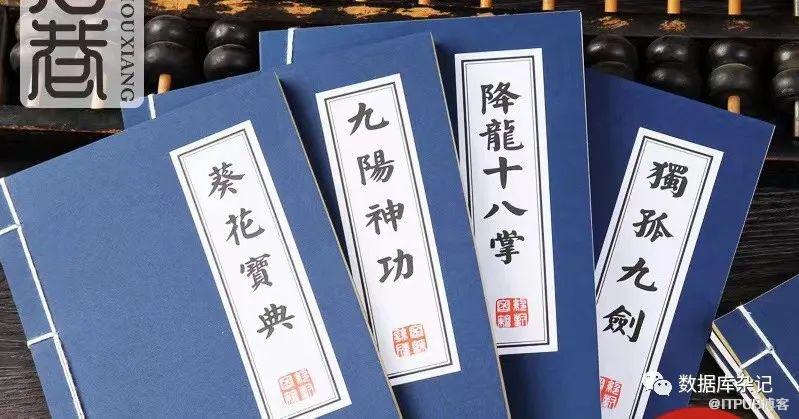 巷
OUXIANG
葵花寶典
九陽神功
降龍十八掌
獨孤九劍
数据库杂记
@ITPUB博客